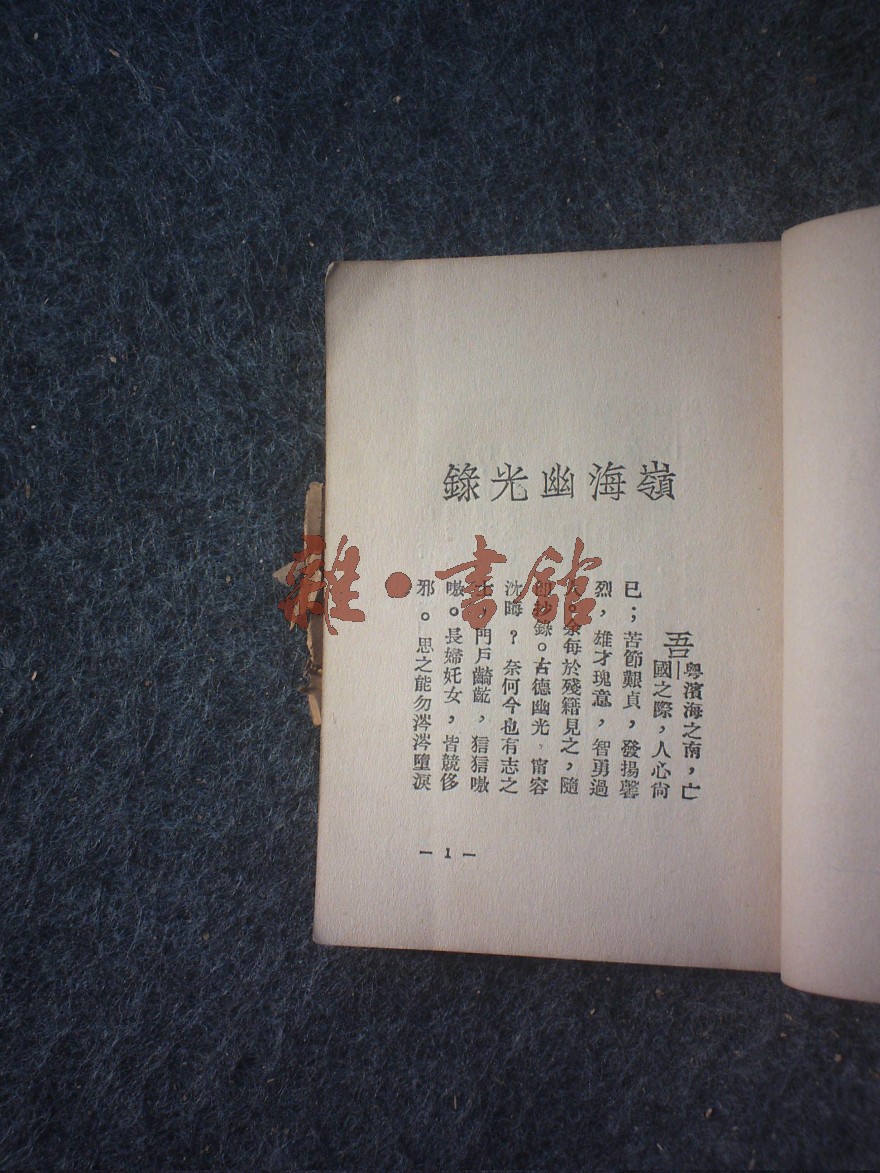 嶺海幽光錄
吾粵濱海之南,亡
國之際,人心尙
已;苦節艱貞,發揚馨
烈,雄才瑰意,智勇過
人。余每於殘籍見之,隨
卽抄錄。古德幽光,甯容
沈晦?奈何今也有志之
士,門戶齮齕,狺狺嗷
嗷。長婦奼女,皆競侈
邪。思之能勿涔涔墮淚
— 1 —
雜·書館